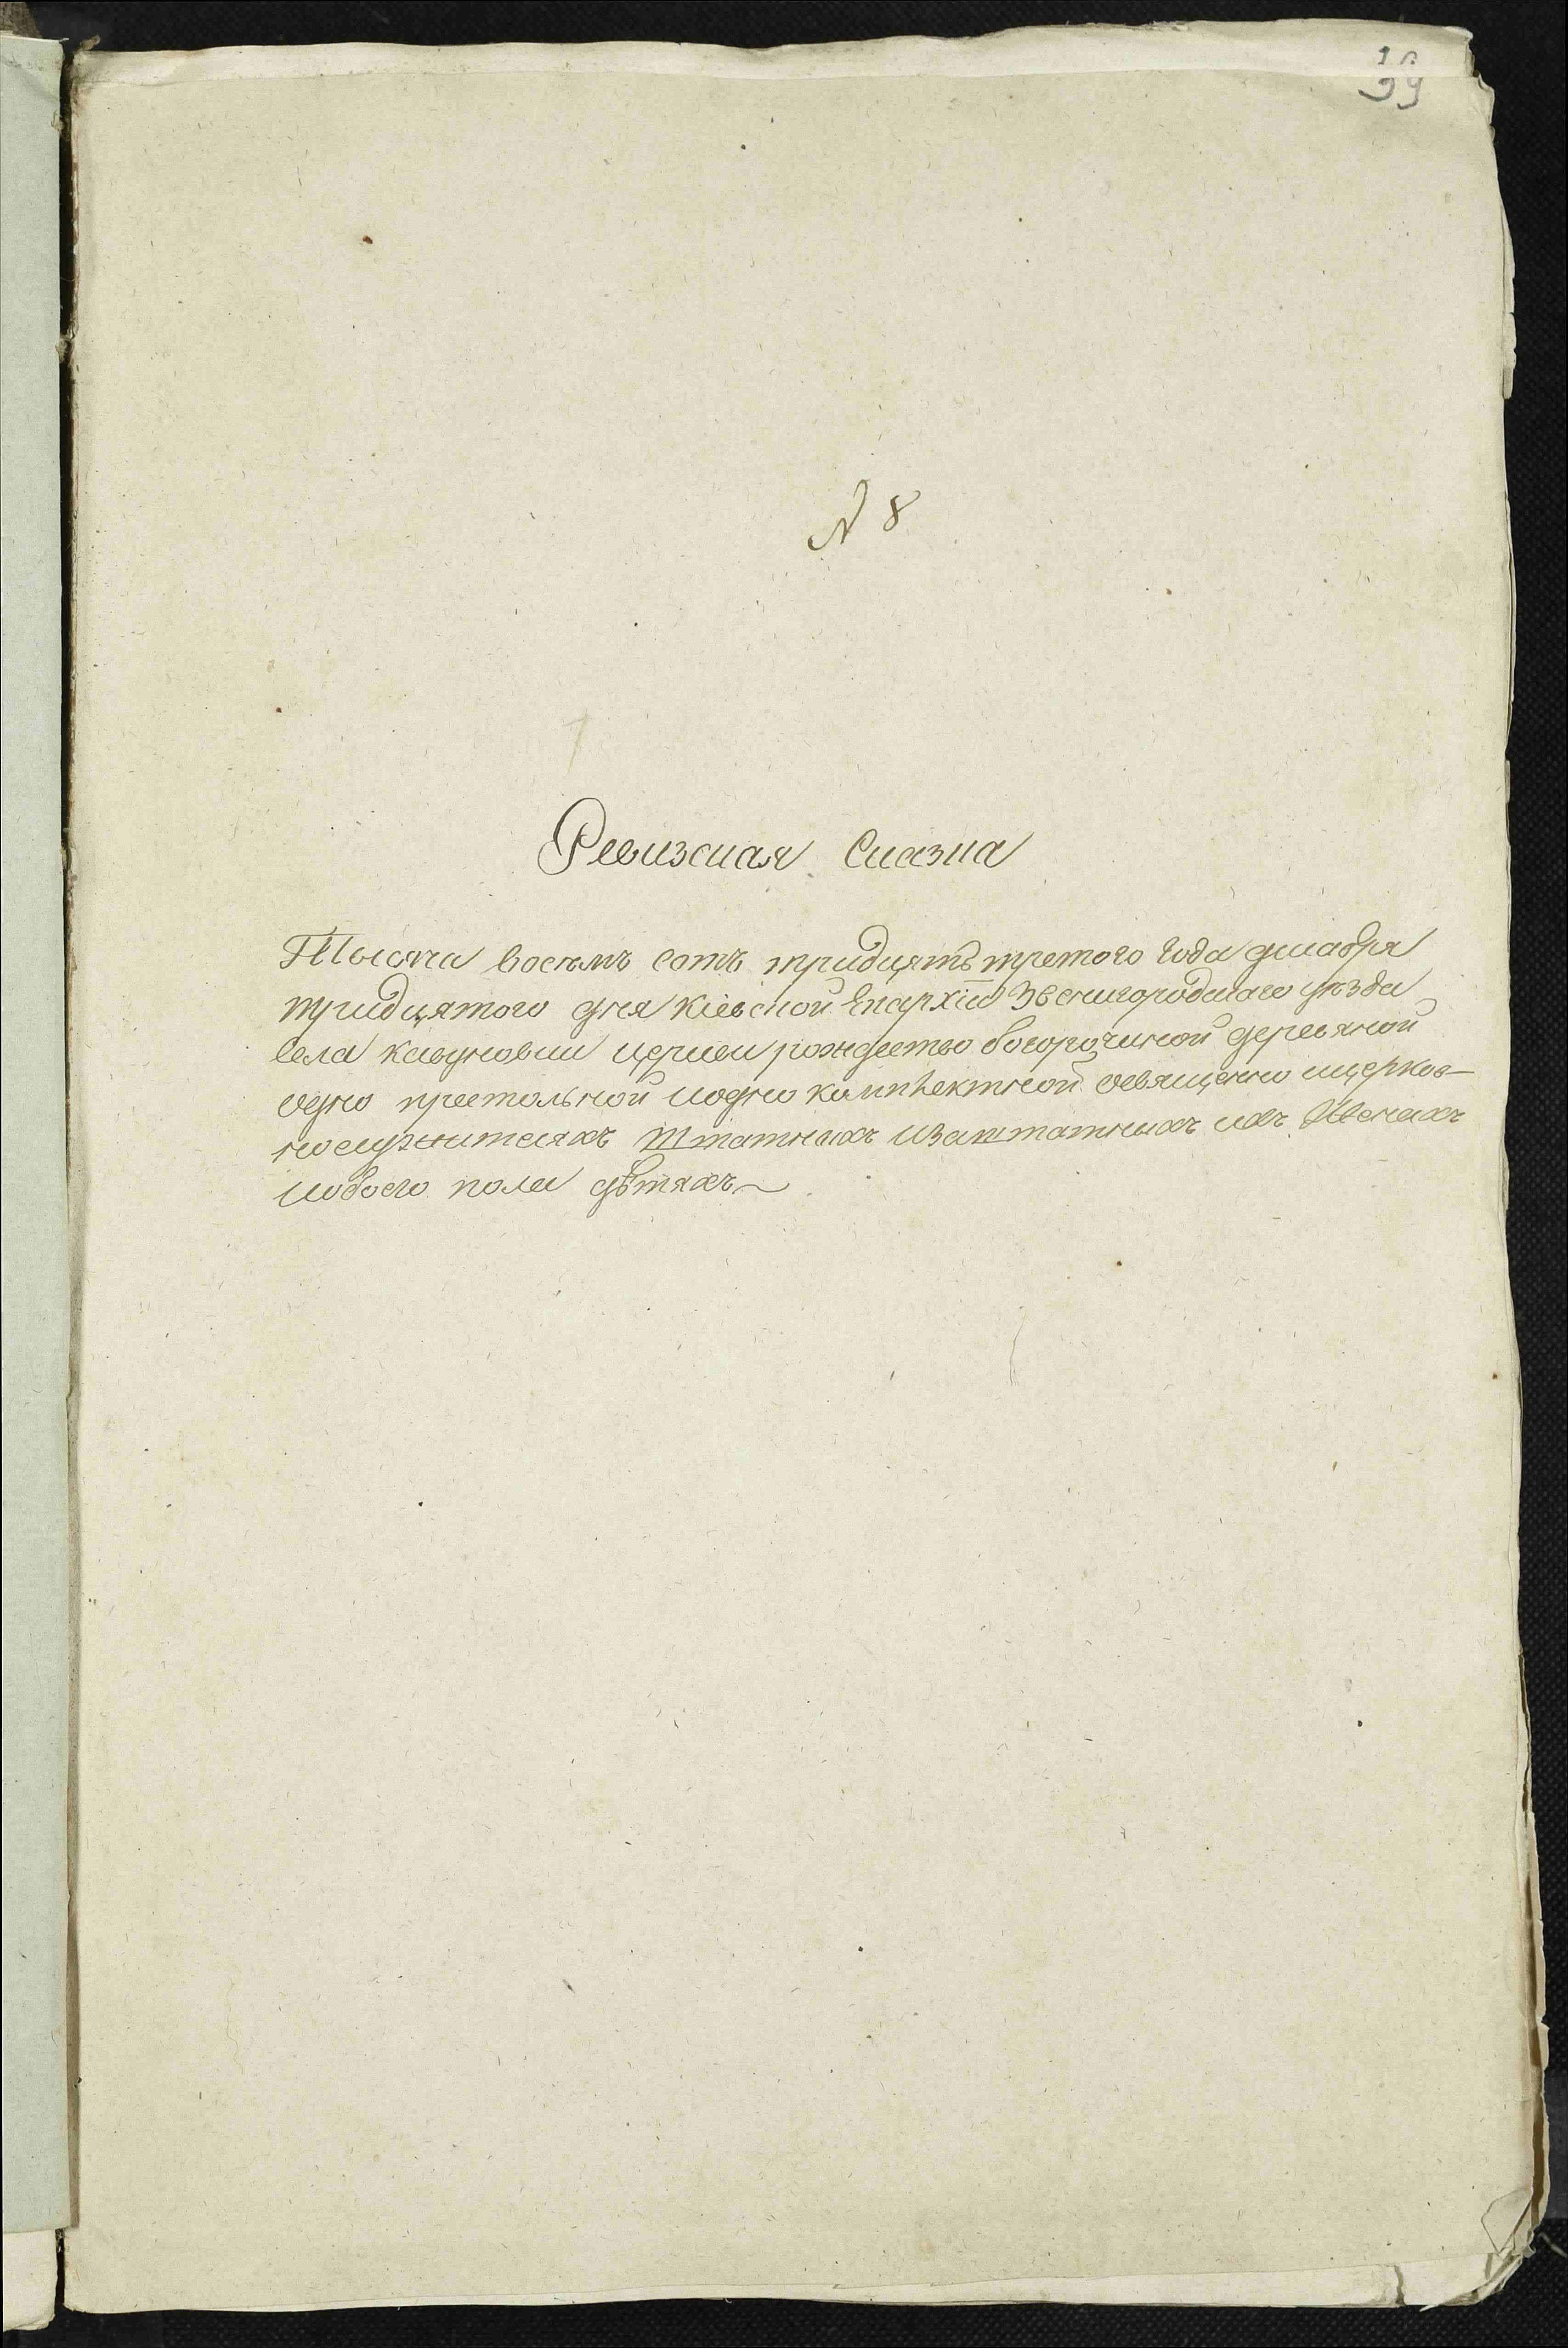 39
№ 8
Ревизская Сказка
Тысяча восемъ сотъ тридцять третого года декабря
тридцятого дня Кіевской Епархіи Звенигородскаго уѣзда
села Кавуновки церкви рождество богородичной деревяной
одно престольной иодно комплектной освященно ицерков-
нослужителяхъ штатныхъ Изаштатныхъ ихъ Женахъ
иобоего пола дѣтяхъ